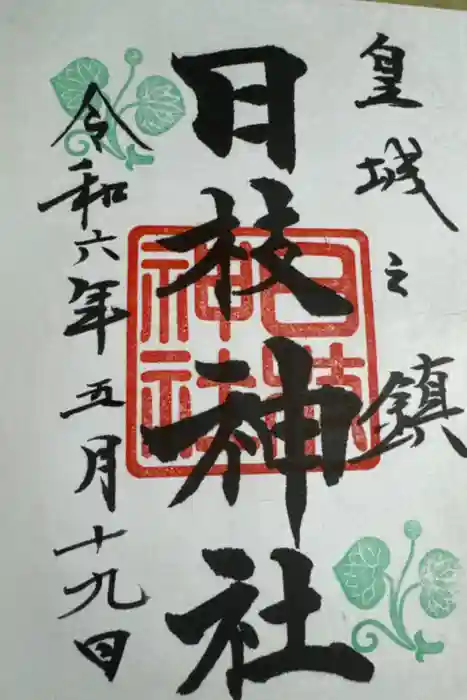 皇城之鎮
日枝神社
令和六年五月十九日
日枝
神社